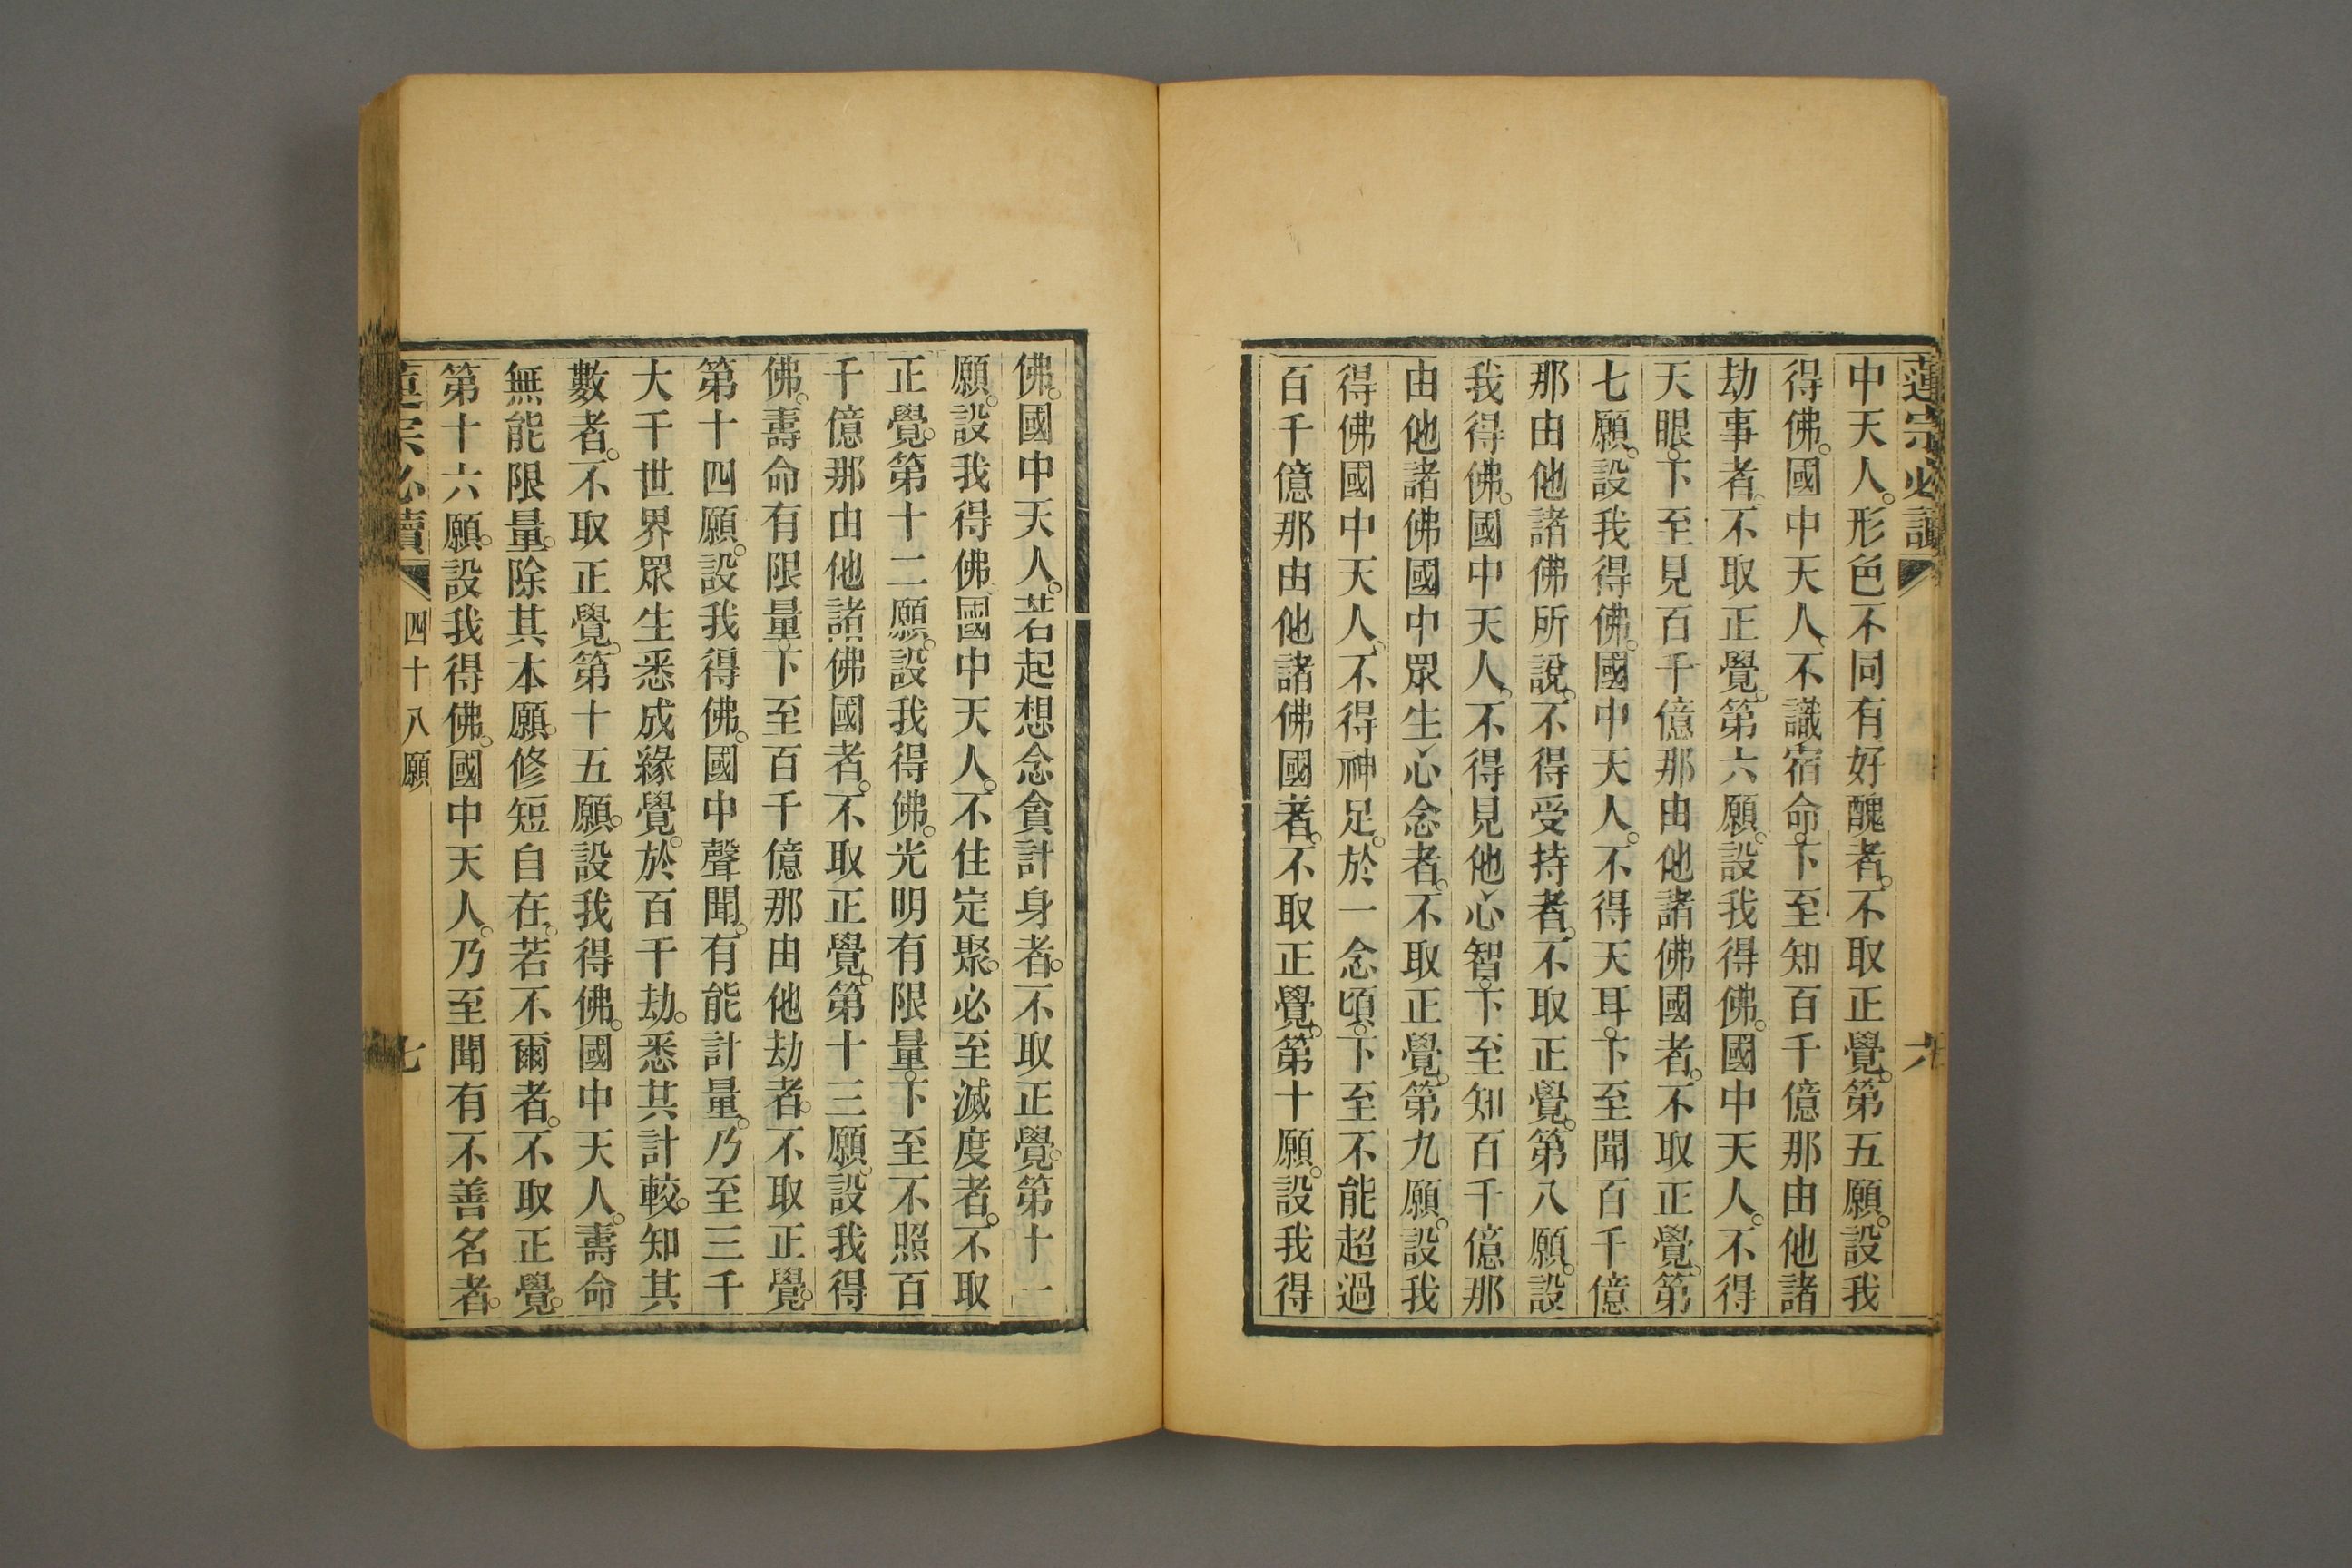 蓮宗必讀
六
中天人。形色不同有好醜者。不取正覺。第五願。設我
得佛。國中天人、不識宿命。下至知百千億那由他諸
劫事者。不取正覺。第六願。設我得佛。國中天人。不得
天眼。下至見百千億那由他諸佛國者。不取正覺。第
七願。設我得佛。國中天人。不得天耳。下至聞百千億
那由他諸佛所說。不得受持者。不取正覺。第八願。設
我得佛。國中天人。不得見他心智。下至知百千億那
由他諸佛國中眾生心念者。不取正覺。第九願。設我
得佛國中天人。不得神足。於一念頃。下至不能超過
百千億那由他諸佛國者。不取正覺。第十願。設我得
佛。國中天人。若起想念貪計身者。不取正覺。第十一
願。設我得佛國中天人。不住定聚。必至滅度者。不取
正覺。第十二願。設我得佛。光明有限量。下至不照百
千億那由他諸佛國者。不取正覺。第十三願。設我得
佛。壽命有限量。下至百千億那由他劫者。不取正覺。
第十四願。設我得佛。國中聲聞。有能計量。乃至三千
大千世界眾生悉成緣覺。於百千劫。悉共計較。知其
數者。不取正覺。第十五願。設我得佛。國中天人。壽命
無能限量。除其本願。修短自在。若不爾者。不取正覺。
第十六願。設我得佛。國中天人。乃至聞有不善名者。
蓮宗必讀
四十八願
七